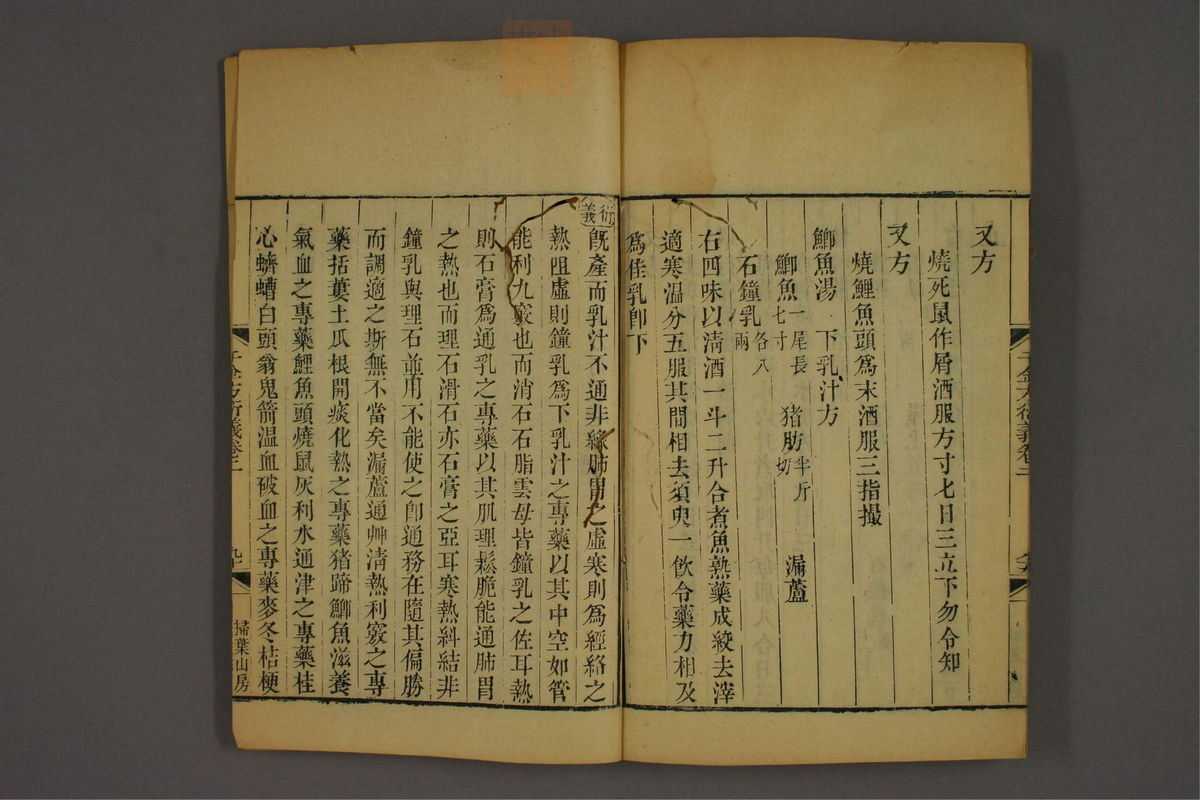 又方
燒死鼠作屑酒服方寸匕日三立下勿令知
又方
燒鯉魚頭爲末酒服三指撮
鯽魚湯 下乳汁方
鯽魚一尾長七寸 猪肪半斤切 漏蘆
石鐘乳各八兩
右四味以淸酒一斗二升合煮魚熟藥成絞去滓
適寒温分五服其間相去須臾一飮令藥力相及
爲佳乳卽下
衍義
旣產而乳汁不通非緣肺胃之虛寒則爲經絡之
熱阻虛則鐘乳爲下乳汁之專藥以其中空如管
能利九竅也而消石石脂雲母皆鐘乳之佐耳熱
則石膏爲通乳之專藥以其肌理鬆脆能通肺胃
之熱也而理石滑石亦石膏之亞耳寒熱糾結非
鐘乳與理石並用不能使之卽通務在隨其偏勝
而調適之斯無不當矣漏蘆通艸淸熱利竅之專
藥括蔞土瓜根開痰化熱之專藥猪蹄鯽魚滋養
氣血之專藥鯉魚頭燒鼠灰利水通津之專藥桂
心蠐螬白頭翁鬼箭温血破血之專藥麥冬桔梗
千金方衍義卷二
九十
掃葉山房